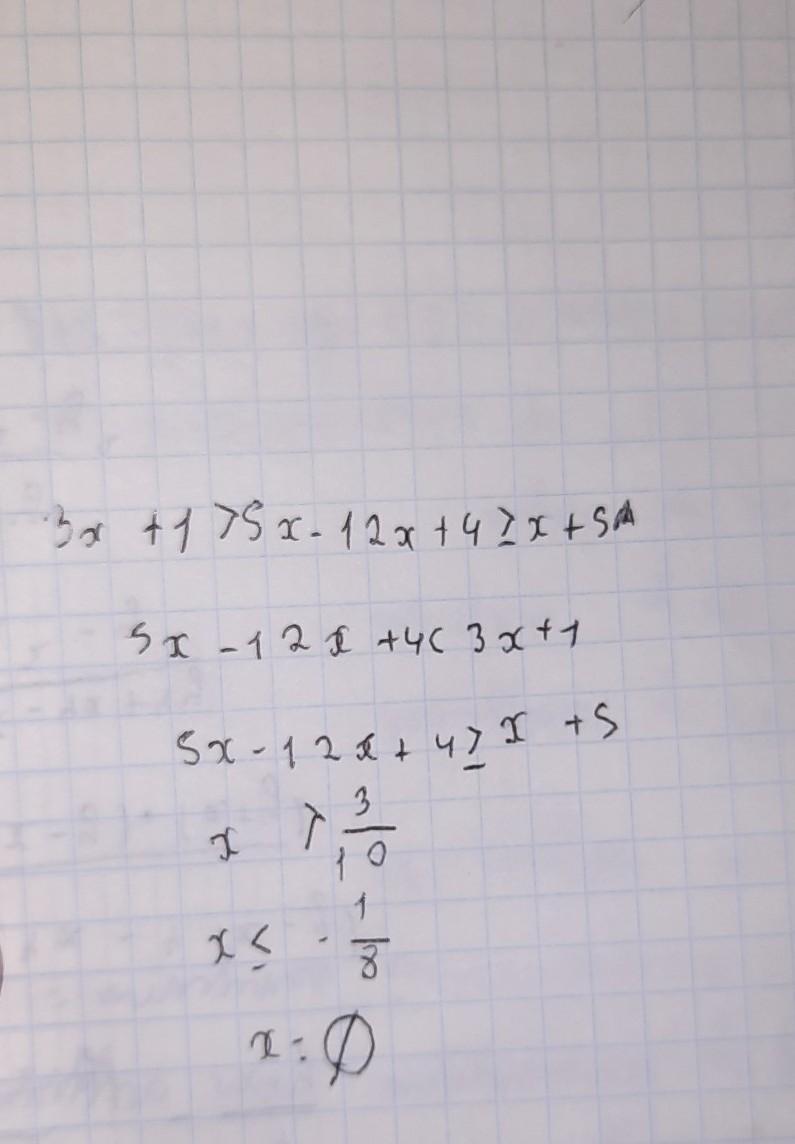 3x + 1 > 5x - 12x + 4 ≥ x + 5
5x - 12x + 4 < 3x + 1
5x - 12x + 4 ≥ x + 5
x > 3/10
x ≤ - 1/8
x = ∅